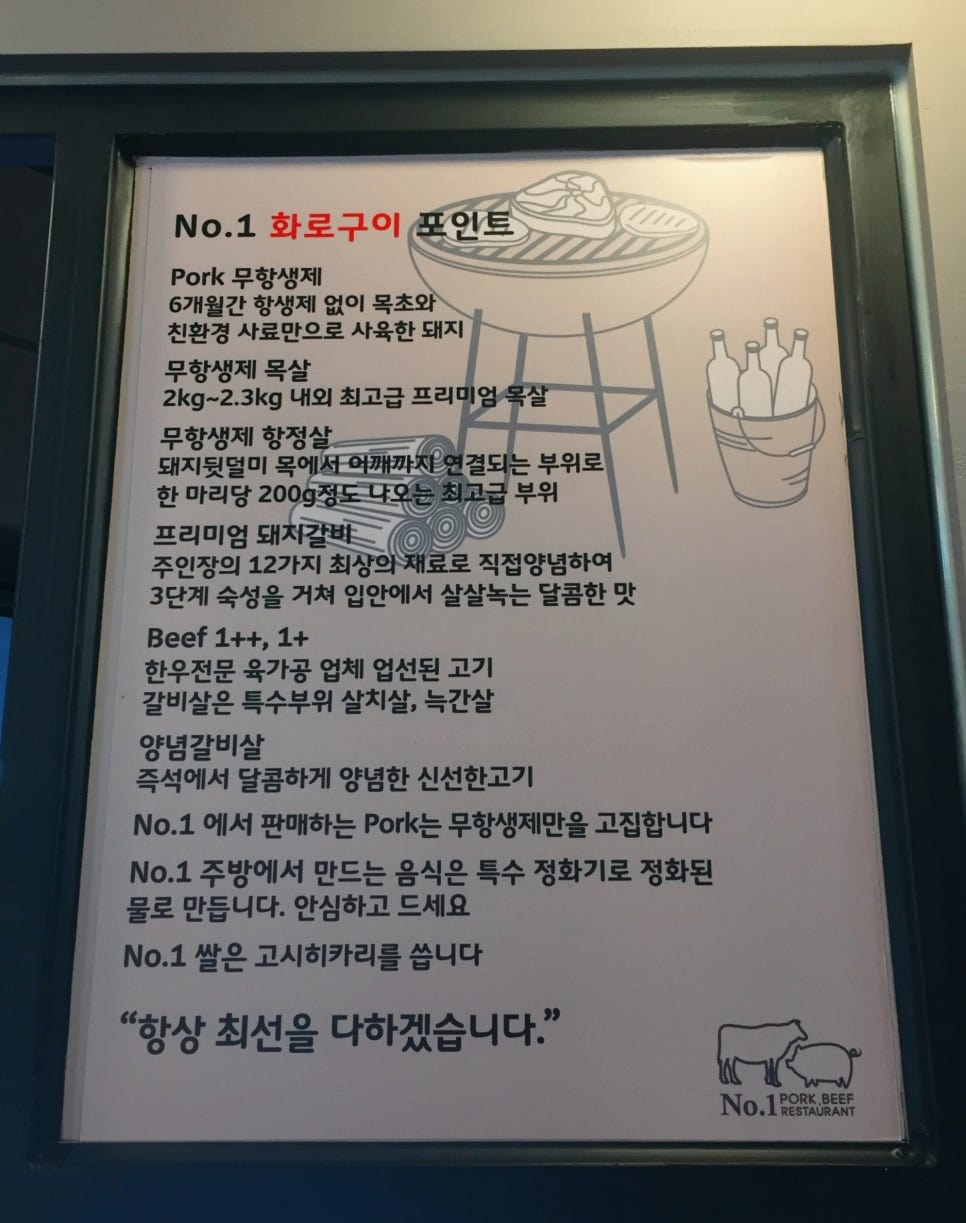 No.1 화로구이 포인트
Pork 무항생제
6개월간 항생제 없이 목초와
친환경 사료만으로 사육한 돼지
무항생제 목살
2kg~2.3kg 내외 최고급 프리미엄 목살
무항생제 항정살
돼지뒷덜미 목에서 어깨까지 연결되는 부위로
한 마리당 200g정도 나오는 최고급 부위
프리미엄 돼지갈비
주인장의 12가지 최상의 재료로 직접양념하여
3단계 숙성을 거쳐 입안에서 살살녹는 달콤한 맛
Beef 1++, 1+
한우전문 육가공 업체 업선된 고기
갈비살은 특수부위 살치살, 늑간살
양념갈비살
즉석에서 달콤하게 양념한 신선한고기
No.1 에서 판매하는 Pork는 무항생제만을 고집합니다
No.1 주방에서 만드는 음식은 특수 정화기로 정화된
물로 만듭니다. 안심하고 드세요
No.1 쌀은 고시히카리를 씁니다
“항상 최선을 다하겠습니다.”
No.1 PORK.BEEF
RESTAURANT